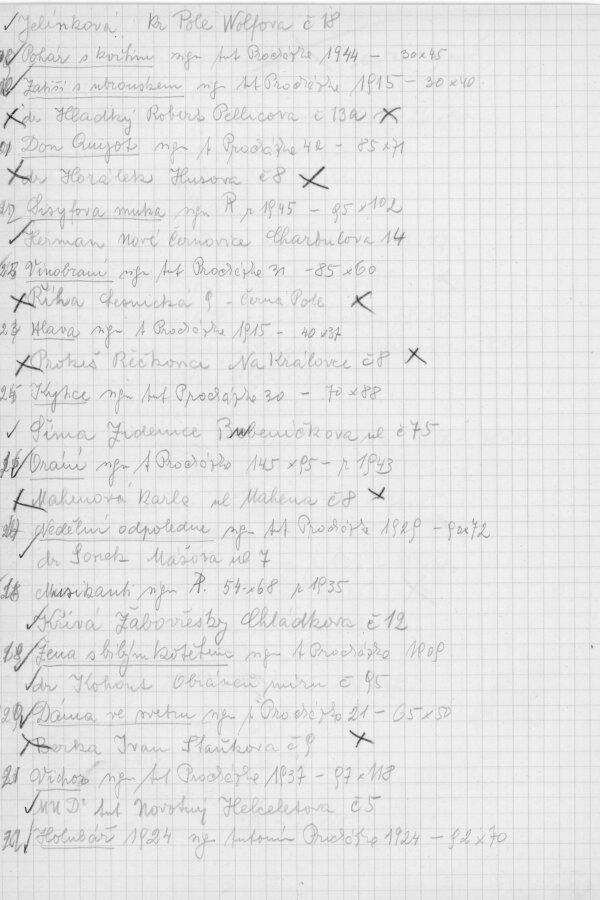 Jelínková Kr Pole Wolfova č 18
Pohár s kvítím sign Ant Procházka 1944 – 30x45
Zátiší s ubrouskem sign Ant Procházka 1915 – 30x40
dr Hladký Robert Pellicova č 13a
Don Quijot sign A Procházka 42 – 85x71
dr Horálek Husova č 8
Sisyfova muka sign P. r 1945 – 95x102
Herman Nové Černovice Charbulova 14
23 Vinobraní sign Ant Procházka 31 – 85x60
Říha Lesnická 9 – Černá Pole
24 Hlava sign A Procházka 1915 – 40x37
Prokeš Řečkovice Na Královce č 8
25 Kytice sign Ant Procházka 30 – 70x88
Šíma Židenice Bubeníčkova ul č 75
26 Orání sign A Procházka 145x95 – r 1943
Mahenová Karla ul Mahena č 8
Nedělní odpoledne sign Ant Procházka 1929 – 90x72
dr Sonek Mášova ul 7
28 Muzikanti sign P. 54x68 r 1935
Křivá Žabovřesky Chládkova č 12
Žena s bílým košětem sign Ant Procházka 1909
dr Kohout Obránců míru č 95
Dáma ve svetru sign P Procházka 21 – 65x50
Berka Ivan Staňkova č 9
Vichor sign Ant Procházka 1937 – 97x118
MUDr Ant Novotný Helceletova č 5
Holubář 1924 sign Antonín Procházka 1924 – 92x70